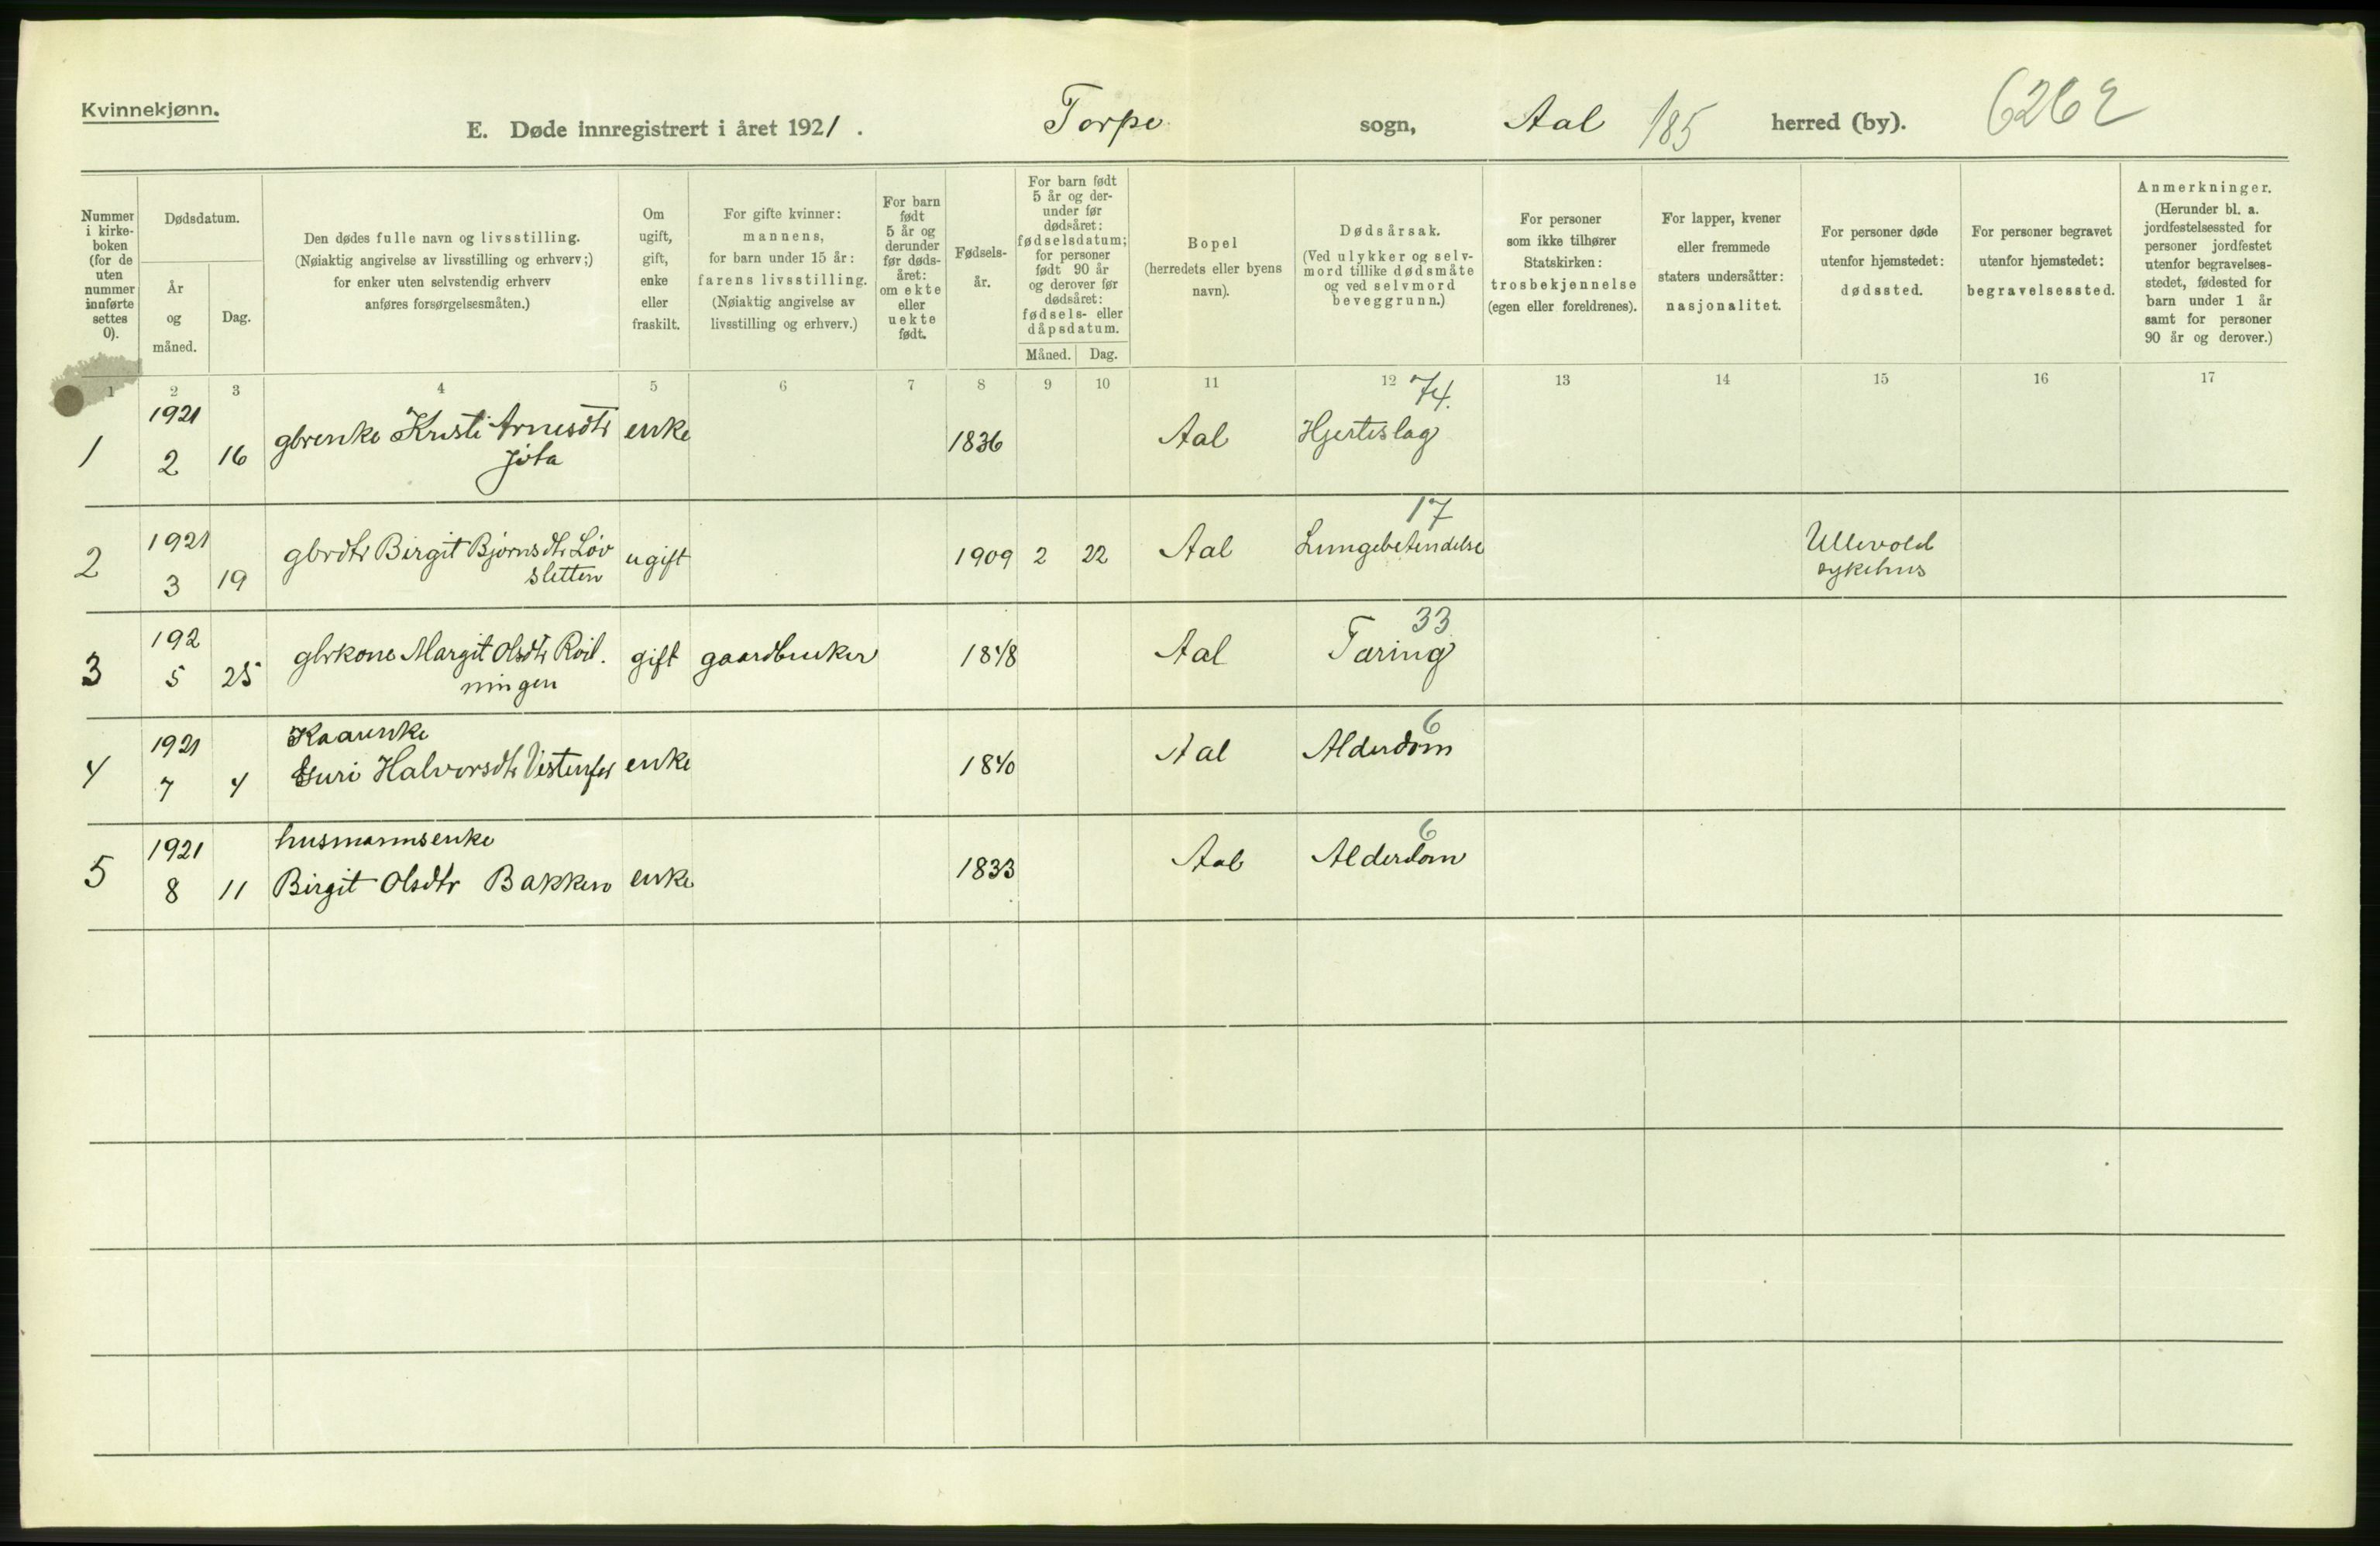 Kvinnekjønn.
E. Døde innregistrert i året 1921. Torpe sogn, Aal 185 herred (by). 6262
Nummer
i kirke-
boken
(for de
uten
nummer
innførte
settes
0).
Dødsdatum.
År
og
måned.
Dag.
Den dødes fulle navn og livsstilling.
(Nøiaktig angivelse av livsstilling og erhverv;)
for enker uten selvstendig erhverv
anføres forsørgelsesmåten.)
Om
ugift,
gift,
enke
eller
fraskilt.
For gifte kvinner:
mannens,
for barn under 15 år:
farens livsstilling.
(Nøiaktig angivelse av
livsstilling og erhverv.)
For barn
født
5 år og
derunder
før døds-
året:
om ekte
eller
uekte
født.
Fødsels-
år.
For barn født
5 år og der-
under før
dødsåret:
fødselsdatum;
for personer
født 90 år
og derover før
dødsåret:
fødsels- eller
dåpsdatum.
Måned. Dag.
Bopel
(herredets eller byens
navn).
Dødsårsak.
(Ved ulykker og selv-
mord tillike dødsmåte
og ved selvmord
beveggrunn.)
For personer
som ikke tilhører
Statskirken:
trosbekjennelse
(egen eller foreldrenes).
For lapper, kvener
eller fremmede
staters undersåtter:
nasjonalitet.
For personer døde
utenfor hjemstedet:
dødssted.
For personer begravet
utenfor hjemstedet:
begravelsessted.
Anmerkninger.
(Herunder bl. a.
jordfestelsessted for
personer jordfestet
utenfor begravelses-
stedet, fødested for
barn under 1 år
samt for personer
90 år og derover.)
1 2 3 4 5 6 7 8 9 10 11 12 13 14 15 16 17
74.
1921
1 2 16 gbrenke Kristi Arnesdtr enke 1836 Aal Hjerteslag
17
1921
2 3 19 gbrdtr Birgit Bjørnsdtr Løv ugift 1909 2 22 Aal Lungebetendelse Ullevold
sletten sykehus
33
192
3 5 25 gbrkone Margit Olsdtr gift gaardbruker 1848 Aal Tæring
ningen
6
1921 Kaarenke
4 7 4 Guri Halvorsdtr enke 1840 Aal Alderdom
6
1921 husmannsenke
5 8 11 Birgit Olsdtr Bakken enke 1833 Aal Alderdom